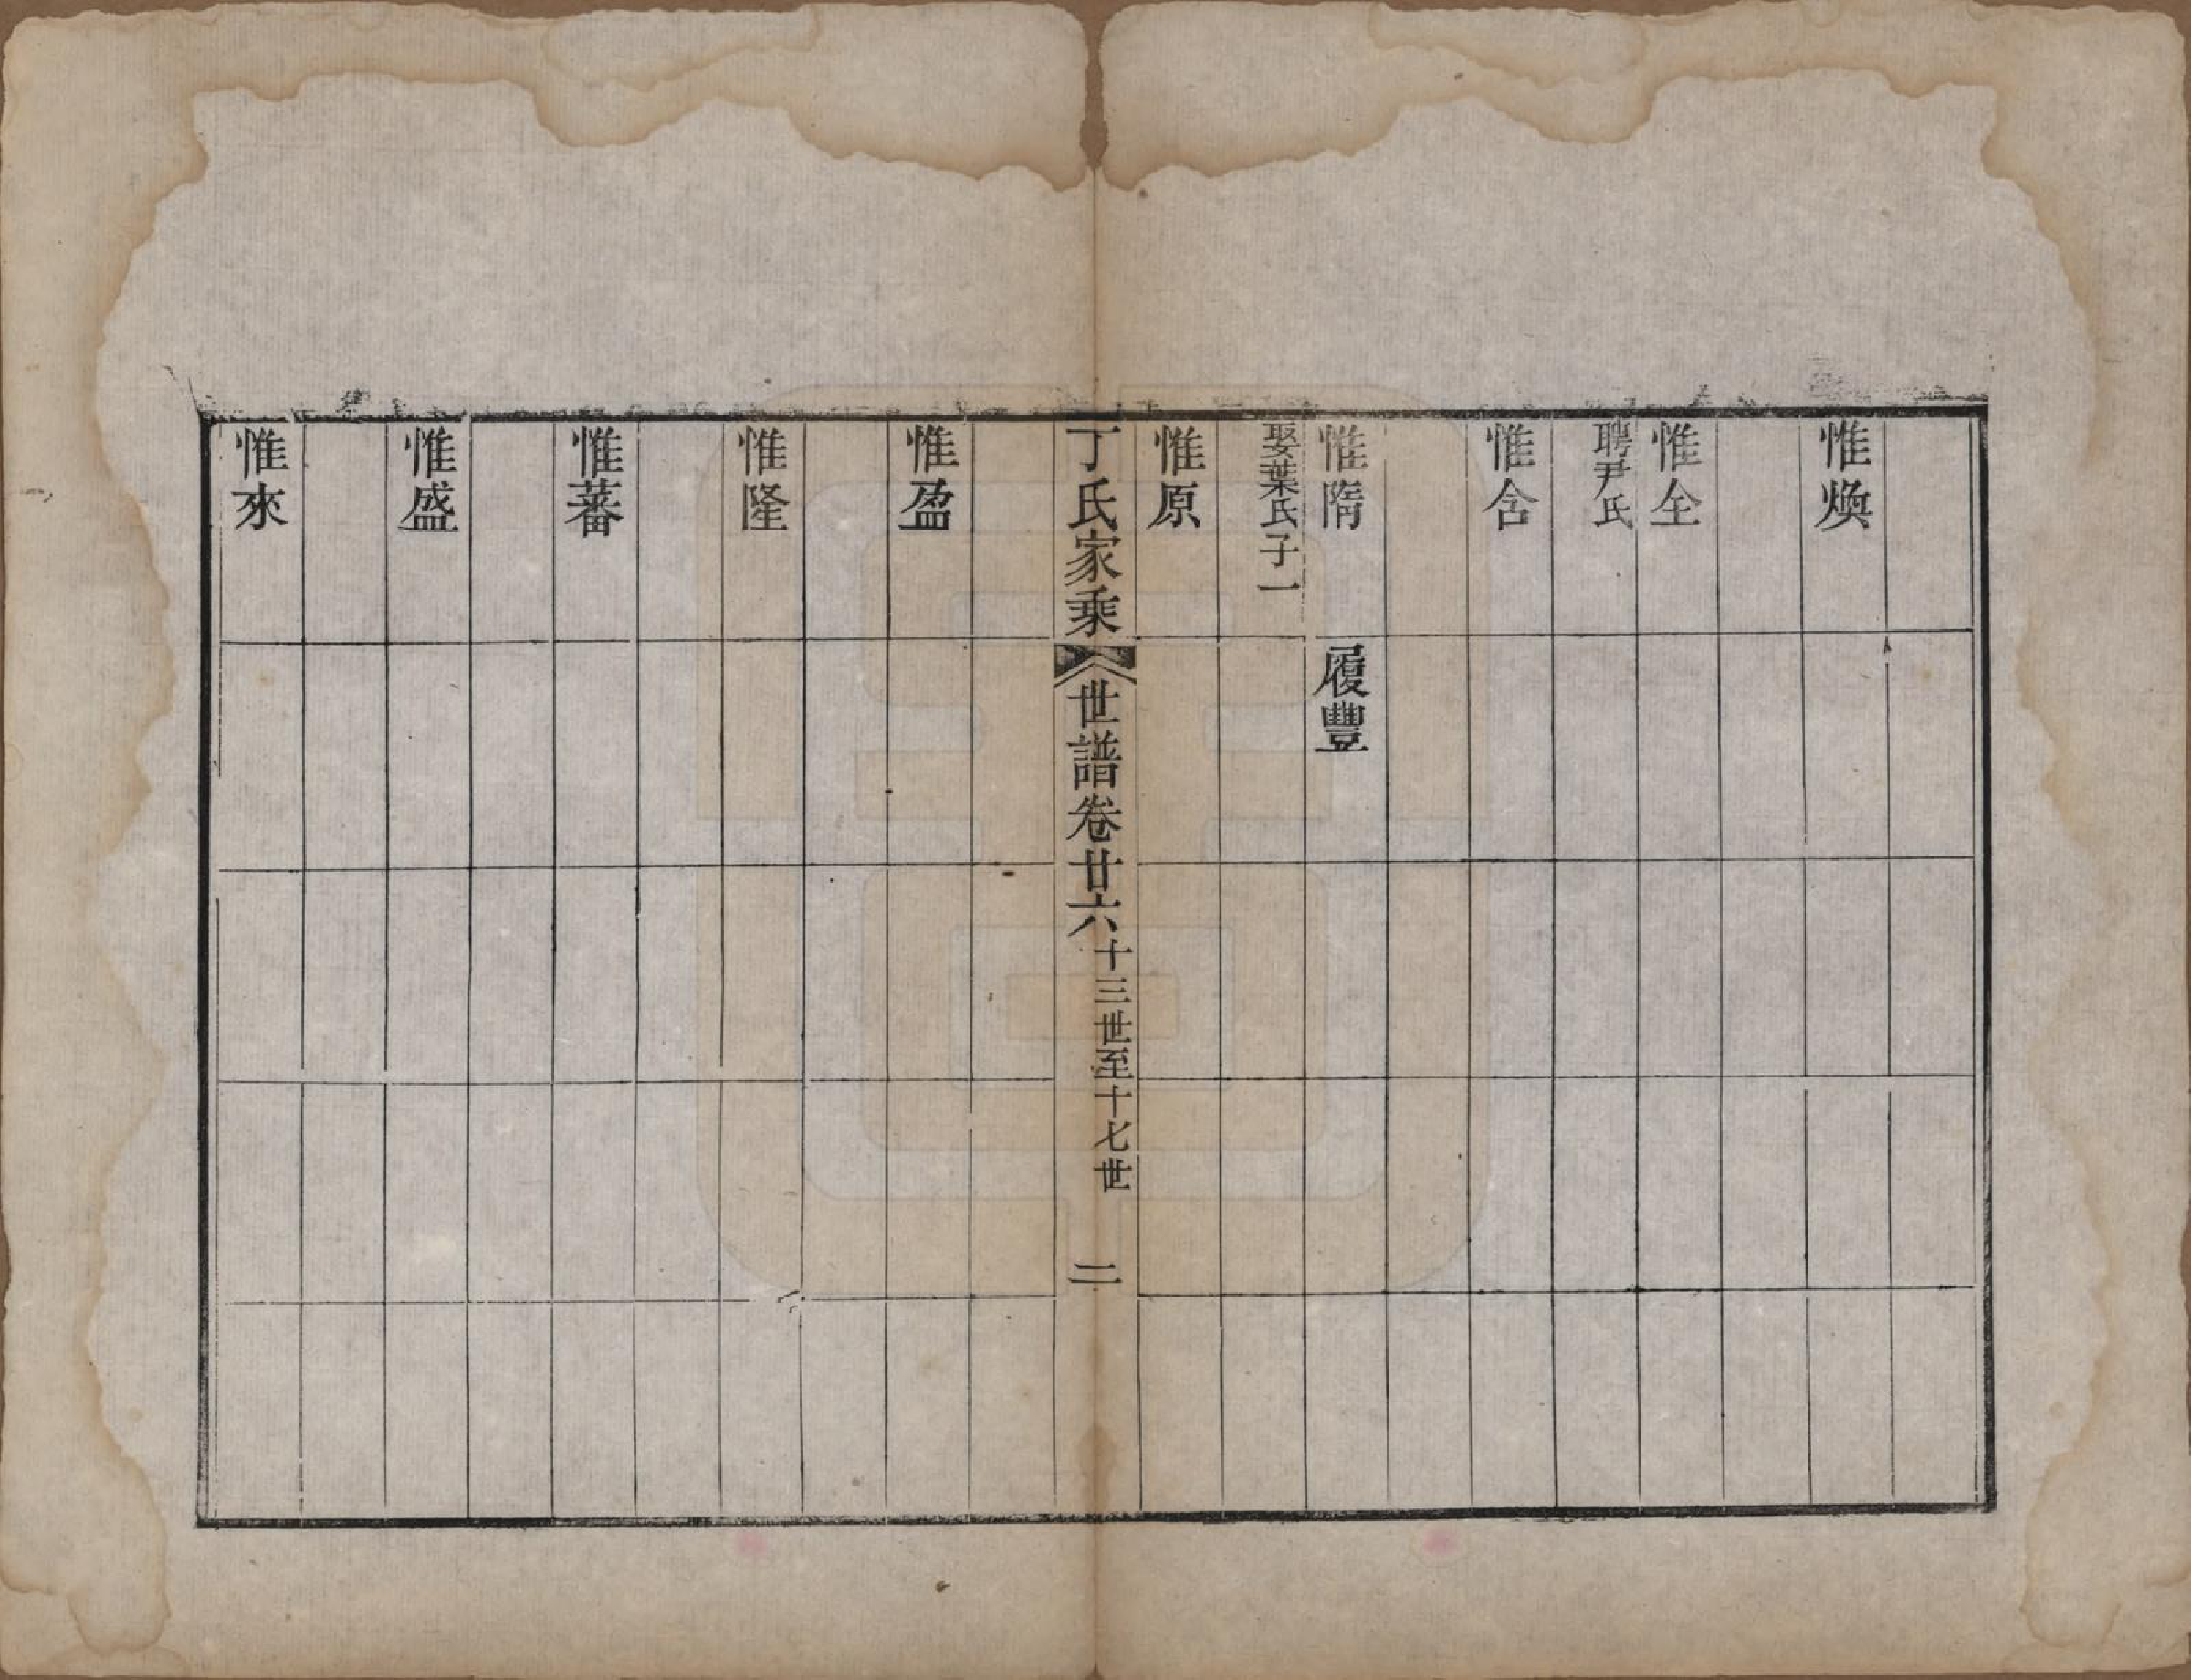 惟煥
惟全
聘尹氏
惟含
惟隋
娶葉氏 子一
履豐
惟原
丁氏家乘 世譜卷廿六 十三世至十七世 二
惟盈
惟隆
惟蕃
惟盛
惟來